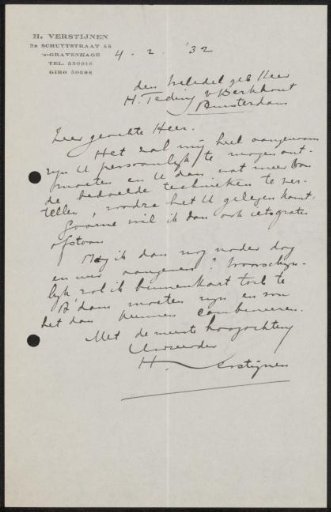 H. VERSTIJNEN
2e SCHUYTSTRAAT
'S-GRAVENHAGE
TEL.
GIRO
4-2-'32
den weledel geb Heer
H. Teding v Berkhout
Amsterdam
Zeer geachte Heer.
Het zal mij heel aangenaam
zijn U persoonlijk te mogen ont-
moeten en U dan wat meer van
de bedoelde technieken te ver-
tellen, zoodra het U gelegen komt.
Gaarne wil ik dan ook iets gratis
afstaan
Mag ik dan nog nader dag
en uur aangeven? Waarschijn-
lijk zal ik binnenkort toch te
A'dam moeten zijn en zou
het dan kunnen combineeren.
Met de meeste hoogachting
Uw
H. Verstijnen